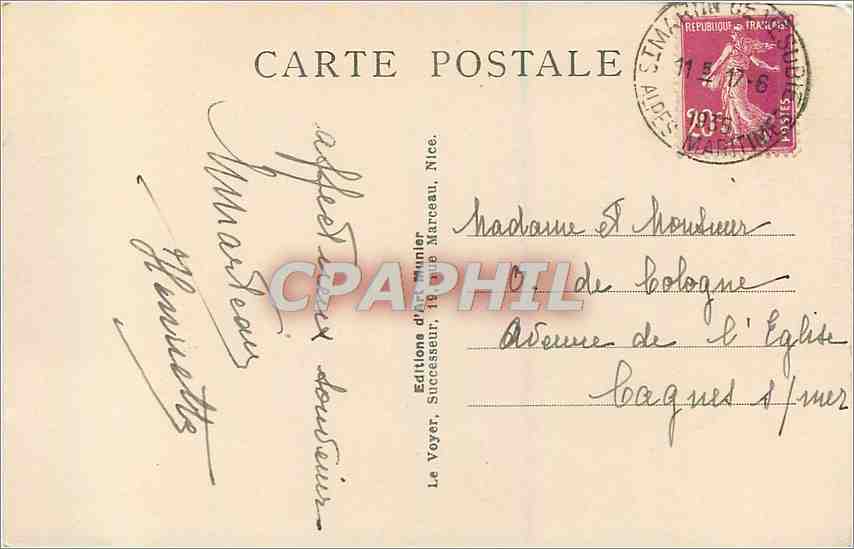 CARTE POSTALE
REPUBLIQUE FRANÇAISE
20c
POSTES
ST MARTIN DE
11 5 17-6
1935
ALPES MARITIMES
affectueux souvenir
Henriette
Editions d'Art Munier
Le Voyer, Successeur, 19, rue Marceau, Nice.
Madame et Monsieur
O. de Cologne
Avenue de l'Eglise
Cagnes s/mer
CPAPHIL